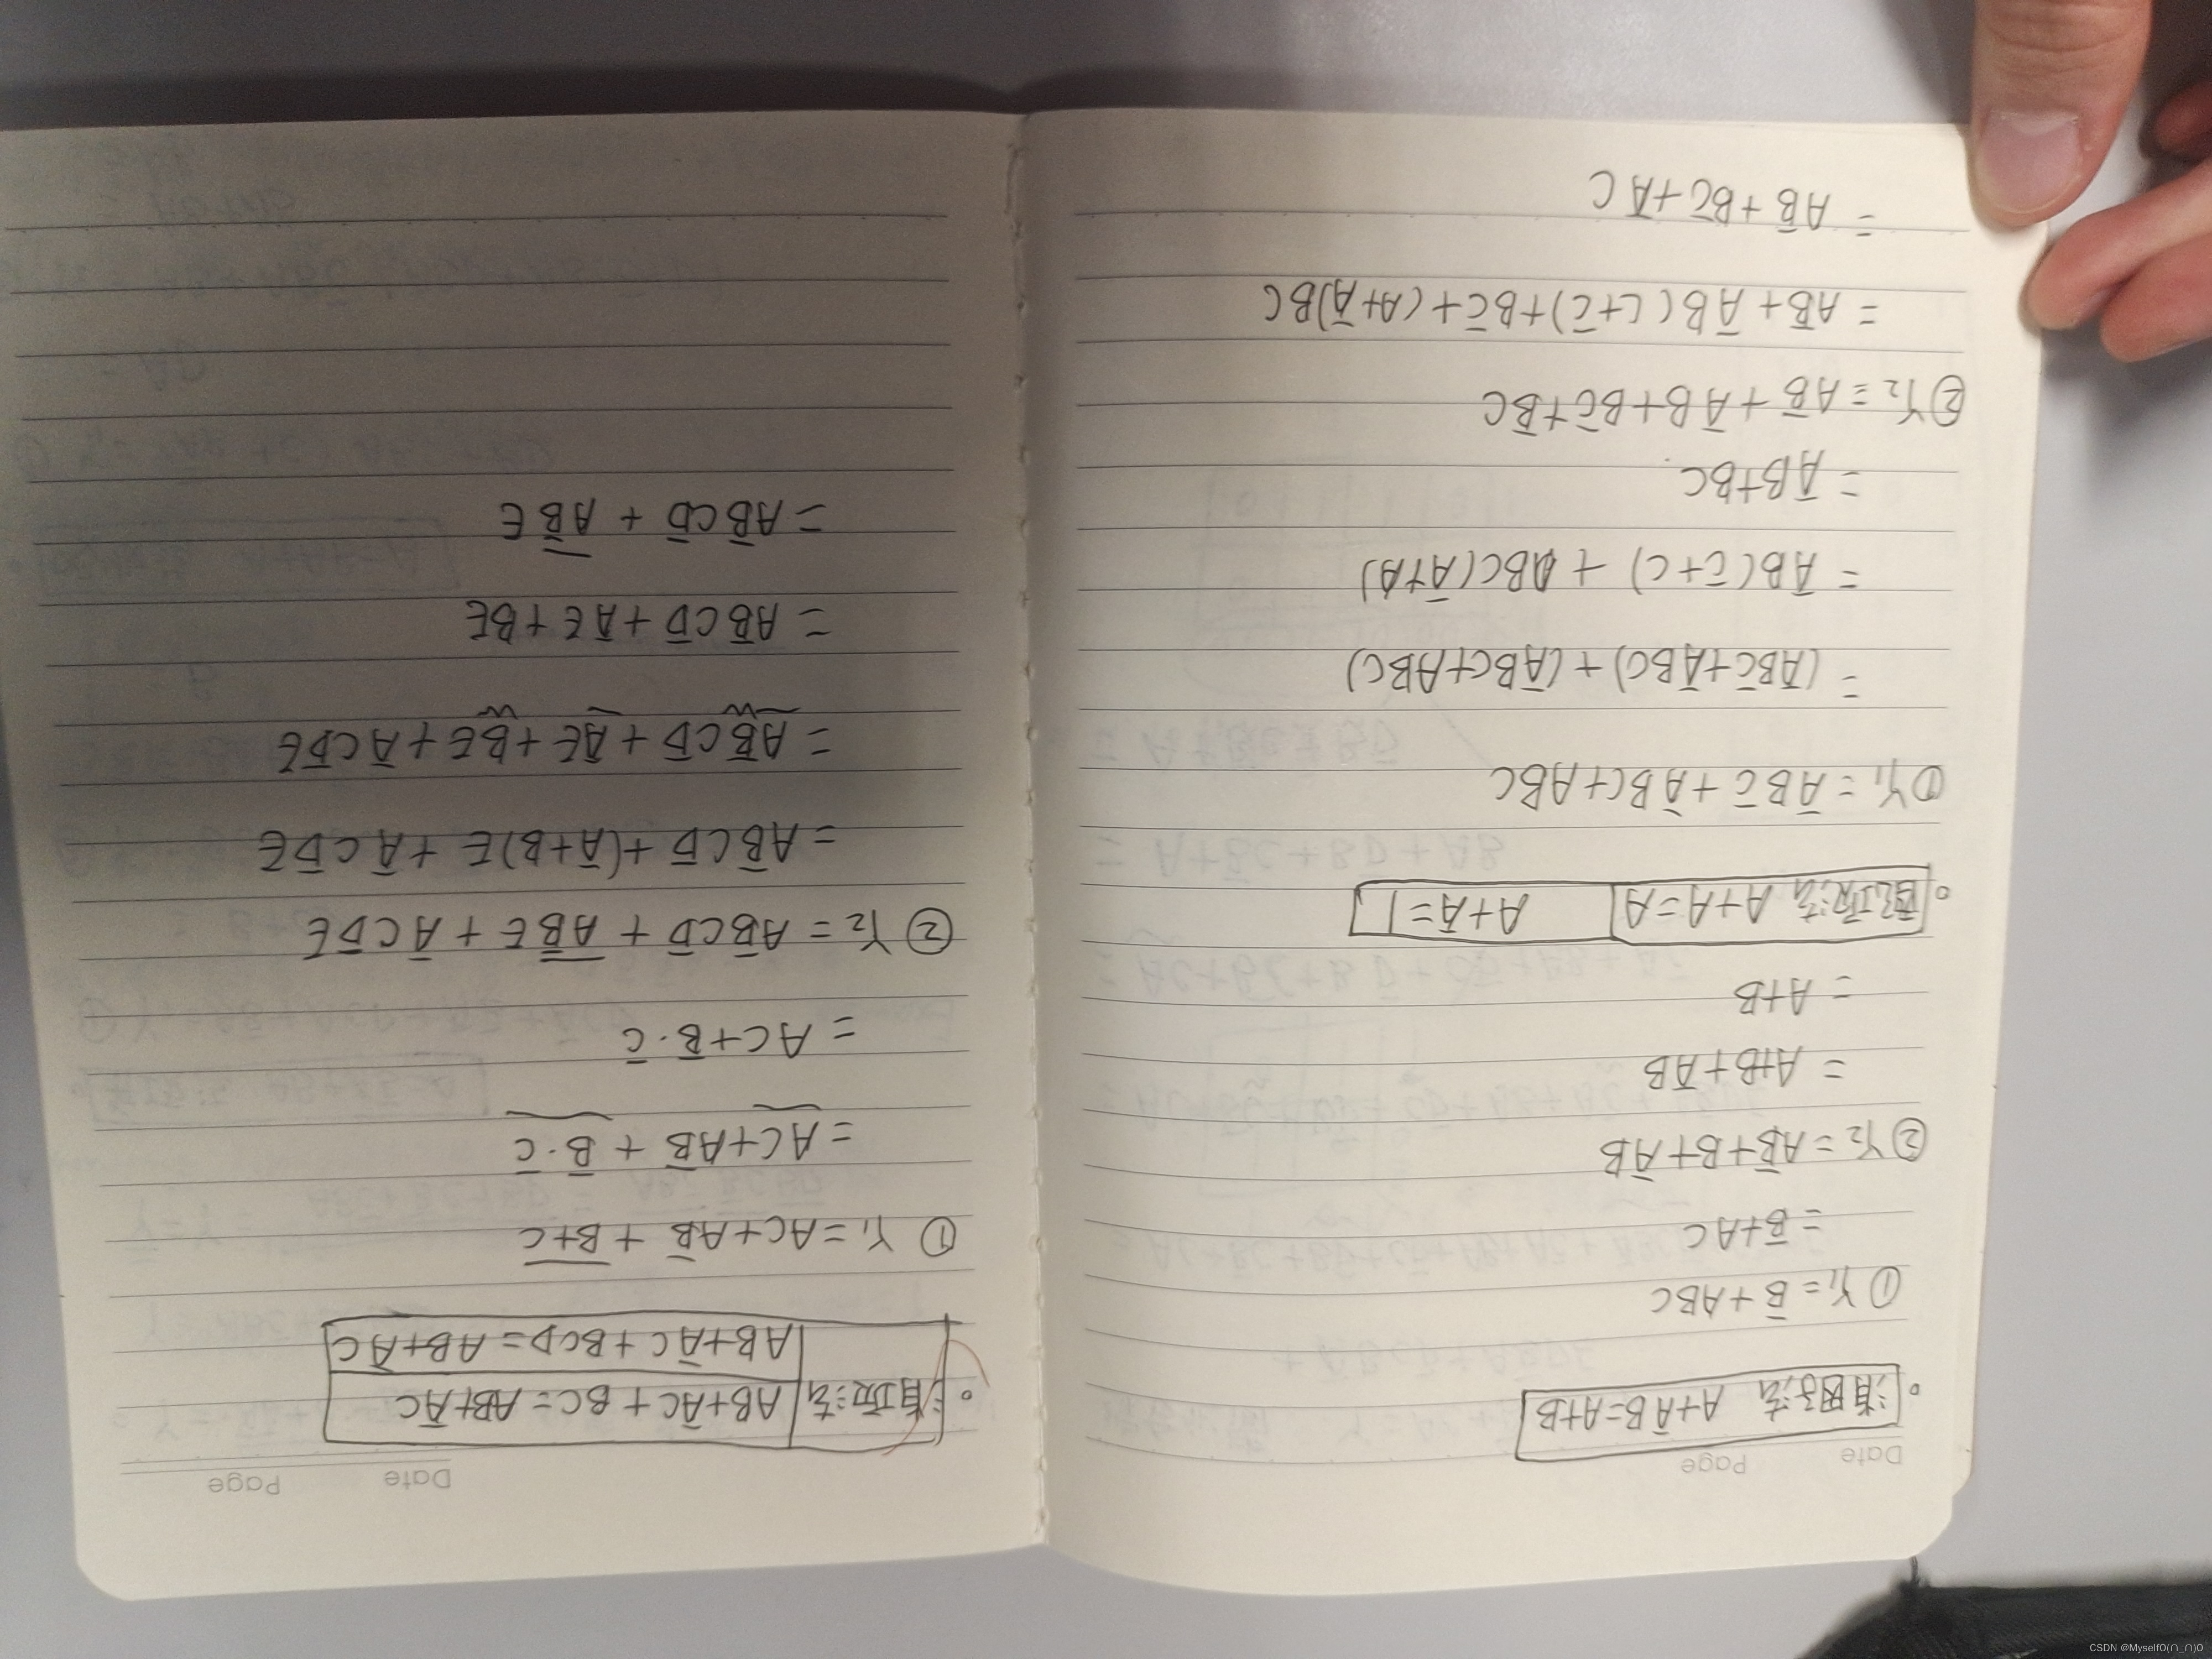 Date Page
◦ 消因子法 A+A̅B=A+B
① Y₁=B̅+ABC
=B̅+AC
② Y₂=AB̅+B+A̅B
=A+B+A̅B
=A+B
◦ 配项法 A+A=A A+A̅=1
① Y₁=A̅BC̅+A̅BC+ABC
=(A̅BC̅+A̅BC)+(A̅BC+ABC)
=A̅B(C̅+C)+BC(A̅+A)
=A̅B+BC
② Y₂=AB̅+A̅B+BC̅+B̅C
=AB̅+A̅B(C+C̅)+BC̅+(A+A̅)B̅C
=AB̅+BC̅+A̅C
Date Page
◦ 消项法 AB+A̅C+BC=AB+A̅C
AB+A̅C+BCD=AB+A̅C
① Y₁=AC+AB̅+B̅+̅C̅
=AC+AB̅+B̅·C̅
=AC+B̅·C̅
② Y₂=AB̅CD̅+A̅B̅̅E+A̅CD̅E
=AB̅CD̅+(A̅+B)E+A̅CD̅E
=AB̅CD̅+A̅E+BE+A̅CD̅E
=AB̅CD̅+A̅E+BE
=AB̅CD̅+A̅B̅̅E
CSDN @MyselfO(∩_∩)O